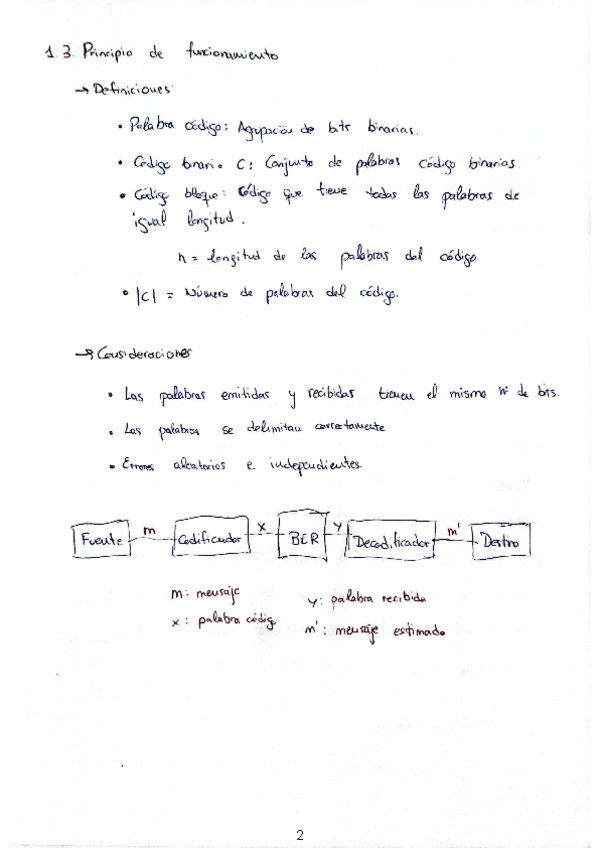 1.3. Principio de funcionamiento
→ Definiciones:
• Palabra código: Agrupación de bits binarias.
• Código binario C: Conjunto de palabras código binarias.
• Código bloque: Código que tiene todas las palabras de
igual longitud.
n = longitud de las palabras del código
• |C| = Número de palabras del código.
→ Consideraciones
• Las palabras emitidas y recibidas tienen el mismo nº de bits.
• Las palabras se delimitan correctamente
• Errores aleatorios e independientes.
Fuente m Codificador x BER y Decodificador m' Destino
m: mensaje
x: palabra código
y: palabra recibida
m': mensaje estimado
2